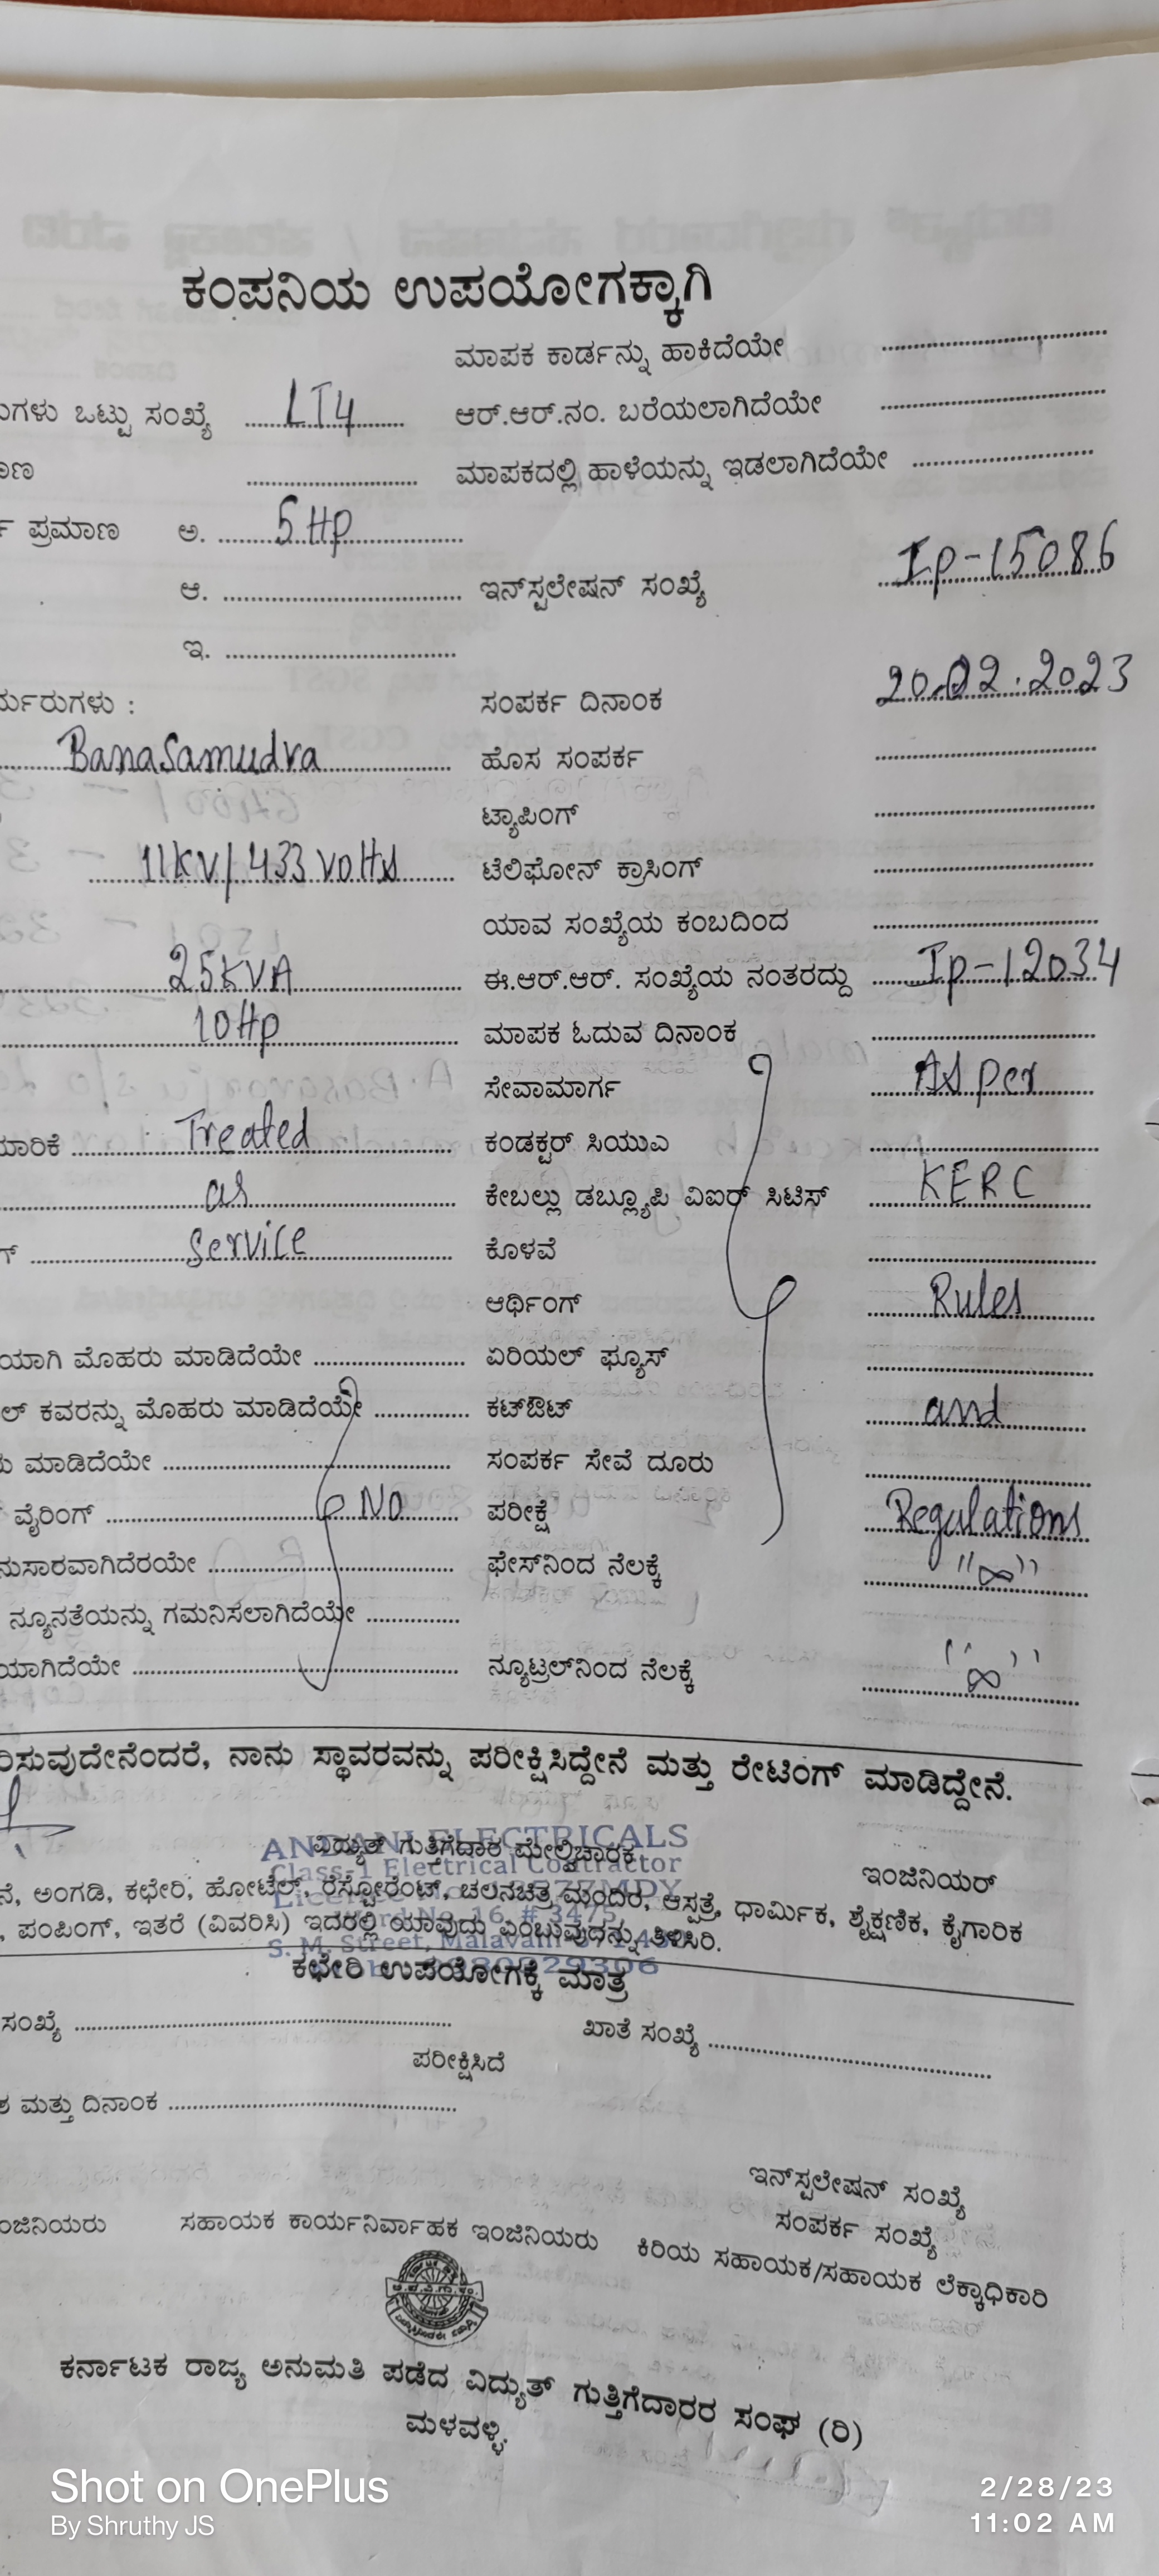 ಕಂಪನಿಯ ಉಪಯೋಗಕ್ಕಾಗಿ
ಮಾಪಕ ಕಾರ್ಡನ್ನು ಹಾಕಿದೆಯೇ
ಗಳು ಒಟ್ಟು ಸಂಖ್ಯೆ LT4 ಆರ್.ಆರ್.ನಂ. ಬರೆಯಲಾಗಿದೆಯೇ
ಮಾಪಕದಲ್ಲಿ ಹಾಳೆಯನ್ನು ಇಡಲಾಗಿದೆಯೇ
ಪ್ರಮಾಣ ಅ. 5 Hp
ಆ. ಇನ್‌ಸ್ಟಲೇಷನ್ ಸಂಖ್ಯೆ Ip-15086
ಇ.
ರ್ಮರುಗಳು : ಸಂಪರ್ಕ ದಿನಾಂಕ 20.02.2023
Banasamudra ಹೊಸ ಸಂಪರ್ಕ
ಟ್ಯಾಪಿಂಗ್
11KV/433 volts ಟೆಲಿಫೋನ್ ಕ್ರಾಸಿಂಗ್
ಯಾವ ಸಂಖ್ಯೆಯ ಕಂಬದಿಂದ
25KVA ಈ.ಆರ್.ಆರ್. ಸಂಖ್ಯೆಯ ನಂತರದ್ದು Ip-12034
10Hp ಮಾಪಕ ಓದುವ ದಿನಾಂಕ
ಸೇವಾಮಾರ್ಗ As per
ಮಾರಿಕೆ Treated ಕಂಡಕ್ಟರ್ ಸಿಯುಎ
as ಕೇಬಲ್ಲು ಡಬ್ಲ್ಯೂಪಿ ವಿಐರ್ ಸಿಟಿಸ್ KERC
ಗ್ Service ಕೊಳವೆ
ಆರ್ಥಿಂಗ್ Rules
ಯಾಗಿ ಮೊಹರು ಮಾಡಿದೆಯೇ ಏರಿಯಲ್ ಫ್ಯೂಸ್
ಲ್ ಕವರನ್ನು ಮೊಹರು ಮಾಡಿದೆಯೇ ಕಟ್‌ಔಟ್ and
ಮಾಡಿದೆಯೇ ಸಂಪರ್ಕ ಸೇವೆ ದೂರು
ವೈರಿಂಗ್ No ಪರೀಕ್ಷೆ Regulations
ನುಸಾರವಾಗಿದೆರಯೇ ಫೇಸ್‌ನಿಂದ ನೆಲಕ್ಕೆ "∞"
ನ್ಯೂನತೆಯನ್ನು ಗಮನಿಸಲಾಗಿದೆಯೇ
ಯಾಗಿದೆಯೇ ನ್ಯೂಟ್ರಲ್‌ನಿಂದ ನೆಲಕ್ಕೆ "∞"
ರಿಸುವುದೇನೆಂದರೆ, ನಾನು ಸ್ಥಾವರವನ್ನು ಪರೀಕ್ಷಿಸಿದ್ದೇನೆ ಮತ್ತು ರೇಟಿಂಗ್ ಮಾಡಿದ್ದೇನೆ.
ANDANI ELECTRICALS
ವಿದ್ಯುತ್ ಗುತ್ತಿಗೆದಾರ ಮೇಲ್ವಿಚಾರಕ
Class-1 Electrical Contractor
ಇಂಜಿನಿಯರ್
ನೆ, ಅಂಗಡಿ, ಕಛೇರಿ, ಹೋಟೆಲ್, ರೆಸ್ಟೋರೆಂಟ್, ಚಲನಚಿತ್ರ ಮಂದಿರ, ಆಸ್ಪತ್ರೆ, ಧಾರ್ಮಿಕ, ಶೈಕ್ಷಣಿಕ, ಕೈಗಾರಿಕ
, ಪಂಪಿಂಗ್, ಇತರೆ (ವಿವರಿಸಿ) ಇದರಲ್ಲಿ ಯಾವುದು ಎಂಬುವುದನ್ನು ತಿಳಿಸಿರಿ.
S. M. Street, Malavalli
ಕಛೇರಿ ಉಪಯೋಗಕ್ಕೆ ಮಾತ್ರ
ಸಂಖ್ಯೆ ಖಾತೆ ಸಂಖ್ಯೆ
ಪರೀಕ್ಷಿಸಿದೆ
ಮತ್ತು ದಿನಾಂಕ
ಇನ್‌ಸ್ಟಲೇಷನ್ ಸಂಖ್ಯೆ
ಸಂಪರ್ಕ ಸಂಖ್ಯೆ
ಂಜಿನಿಯರು ಸಹಾಯಕ ಕಾರ್ಯನಿರ್ವಾಹಕ ಇಂಜಿನಿಯರು ಕಿರಿಯ ಸಹಾಯಕ/ಸಹಾಯಕ ಲೆಕ್ಕಾಧಿಕಾರಿ
ಕರ್ನಾಟಕ ರಾಜ್ಯ ಅನುಮತಿ ಪಡೆದ ವಿದ್ಯುತ್ ಗುತ್ತಿಗೆದಾರರ ಸಂಘ (ರಿ)
ಮಳವಳ್ಳಿ.
Shot on OnePlus 2/28/23
By Shruthy JS 11:02 AM